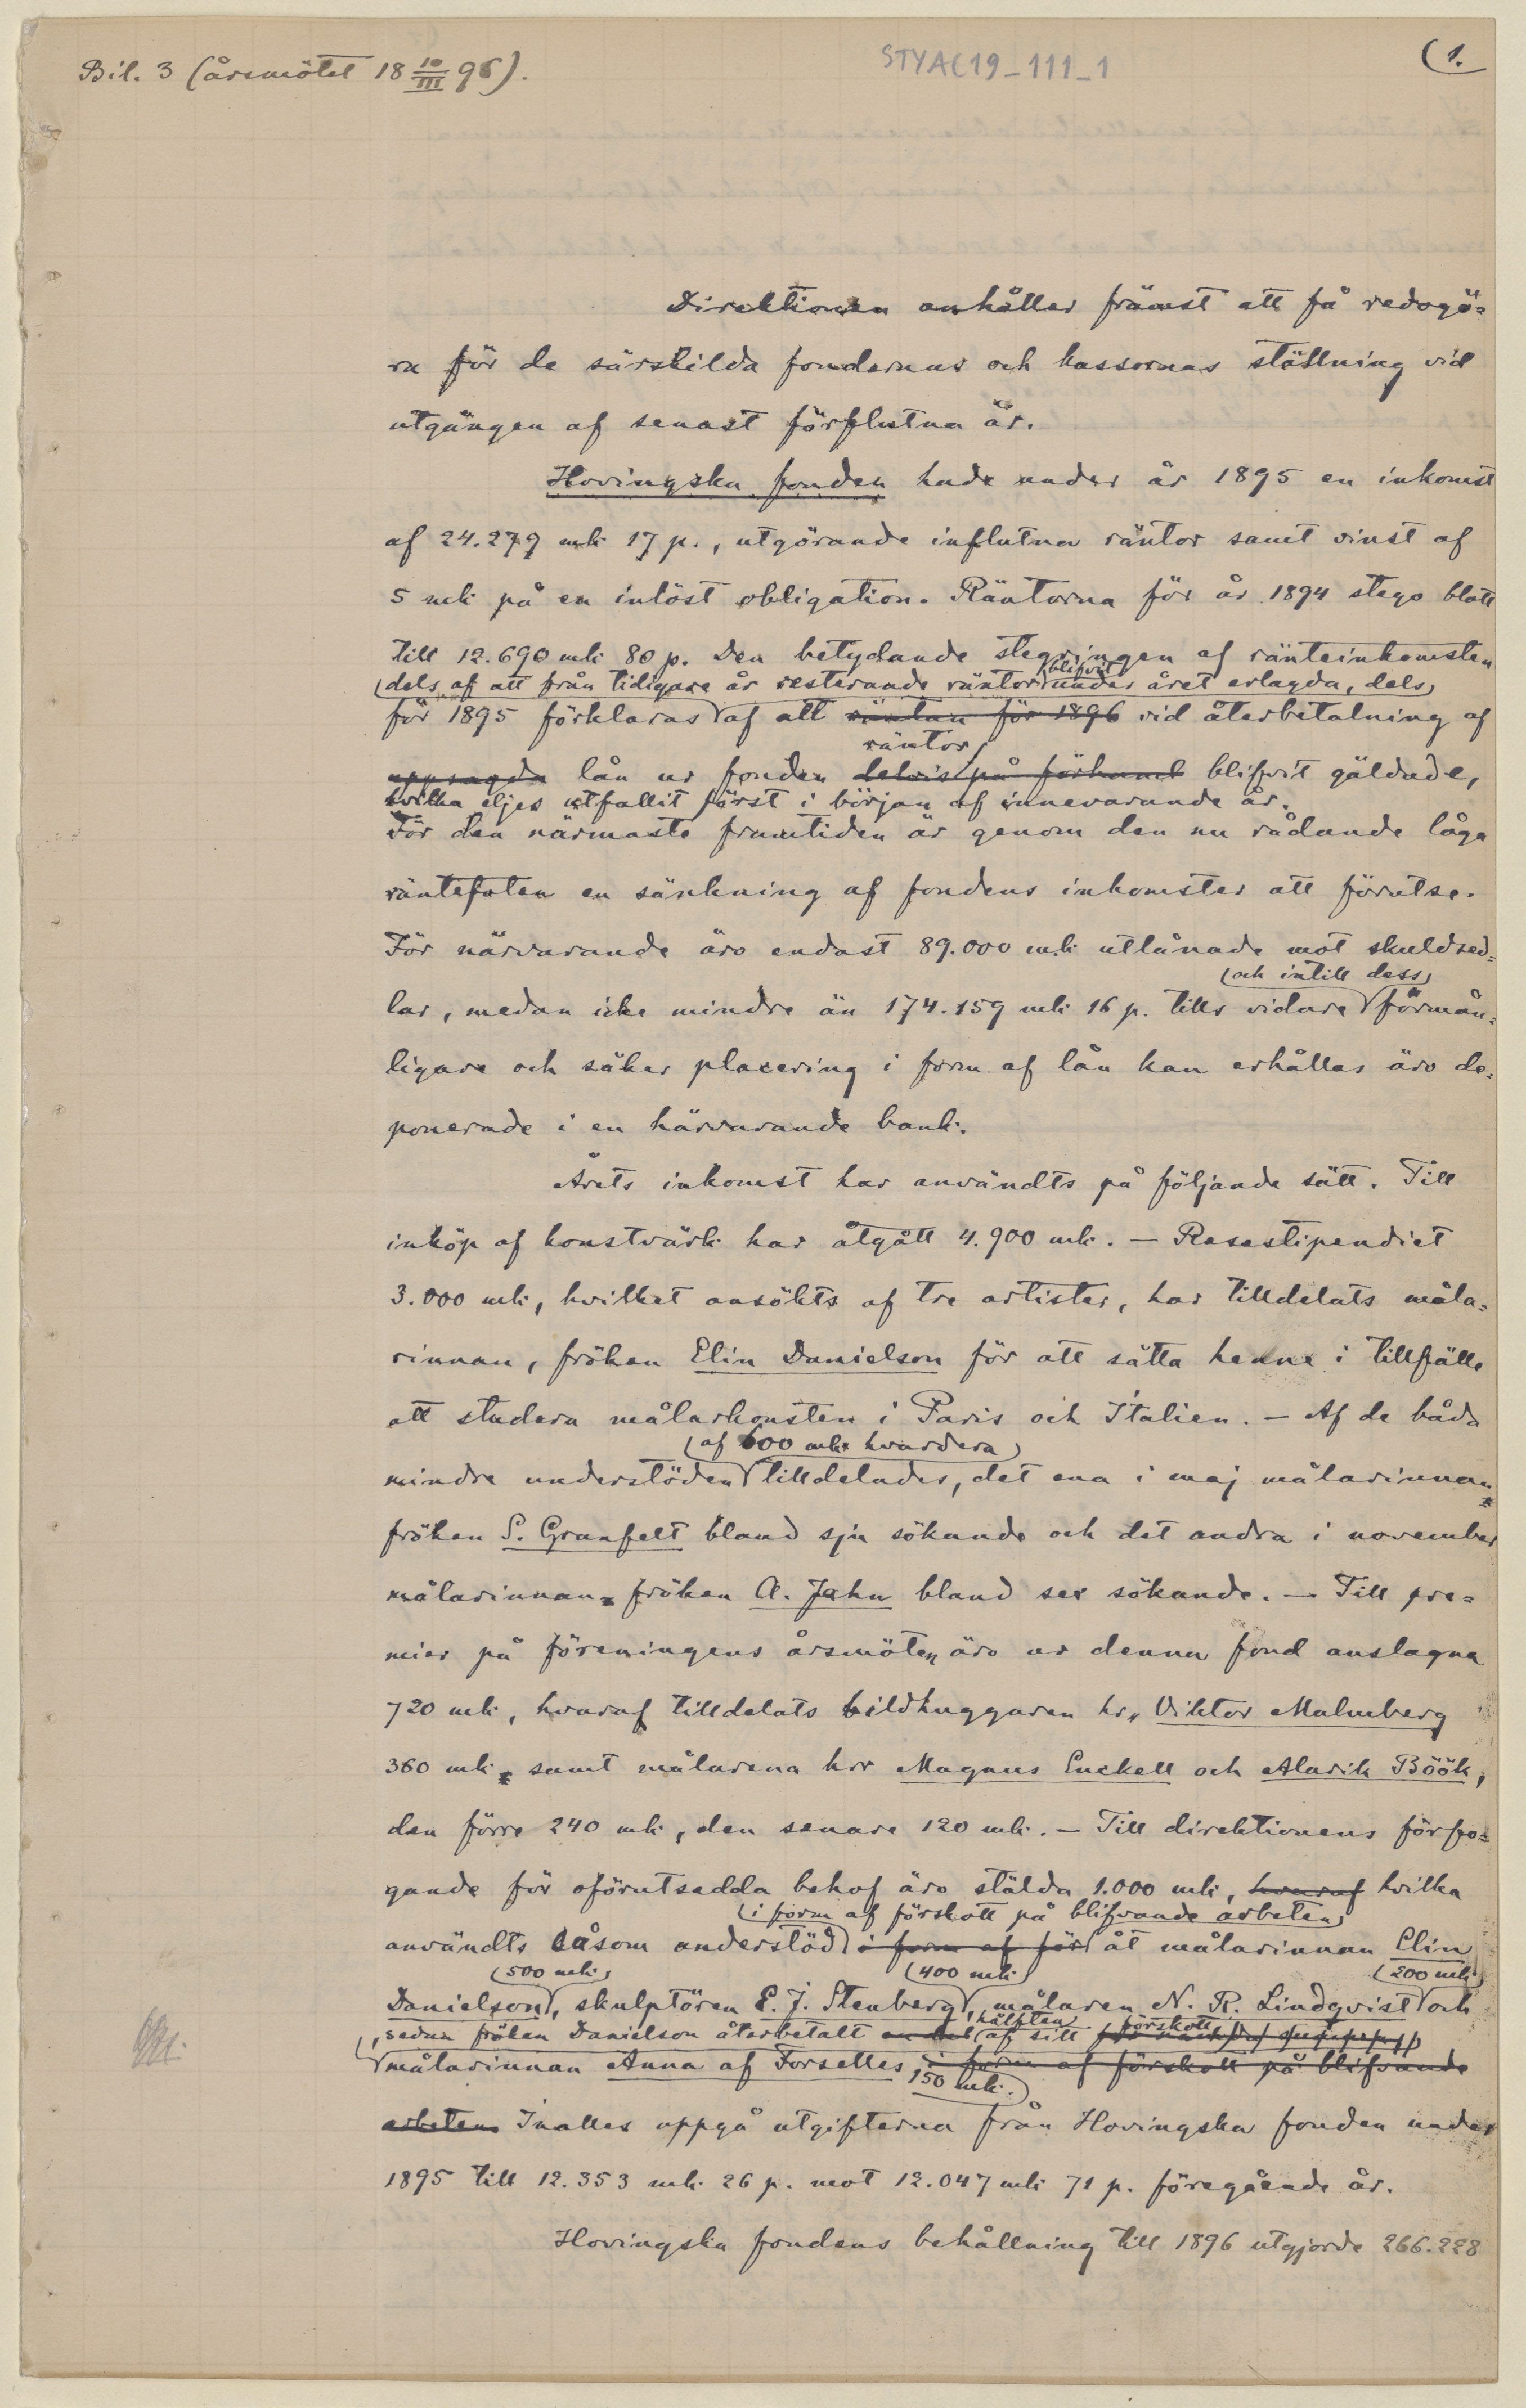 Bil. 3 (årsmötet 18 10/III 96).
STYA(19_111_1
(1.
Direktionen anhåller främst att få redogö=
ra för de särskilda fondernas och kassornas ställning vid
utgången af senast förflutna år.
Hovingska fonden hade under år 1895 en inkomst
af 24.279 mk 17 p., utgörande influtna räntor samt vinst af
5 mk på en inlöst obligation. Räntorna för år 1894 stego blott
till 12.690 mk 80 p. Den betydande stegringen af ränteinkomsten
blifvit
dels af att från tidigare år resterande räntor under året erlagda, dels
för 1895 förklaras af att räntan för 1896 vid återbetalning af
räntor
uppsagda lån ur fonden delvis på förhand blifvit gäldade,
hvilka eljes utfallit först i början af innevarande år.
För den närmaste framtiden är genom den nu rådande låga
räntefoten en sänkning af fondens inkomster att förutse.
För närvarande äro endast 89.000 mk utlånade mot skuldsed=
(och intill dess)
lar, medan icke mindre än 174.159 mk 16 p. tills vidare förmån=
ligare och säker placering i form af lån kan erhållas äro de=
ponerade i en härvarande bank.
Årets inkomst har användts på följande sätt. Till
inköp af konstvärk har åtgått 4.900 mk. — Resestipendiet
3.000 mk, hvilket ansökts af tre artister, har tilldelats måla=
rinnan, fröken Elin Danielson för att sätta henne i tillfälle
att studera målarkonsten i Paris och Italien. — Af de båda
(af 600 mk hvardera)
mindre understöden tilldelades, det ena i maj målarinnan
fröken S. Granfelt bland sju sökande och det andra i november
målarinnan fröken A. Jahn bland sex sökande. — Till pre=
mier på föreningens årsmöten äro ur denna fond anslagna
720 mk, hvaraf tilldelats bildhuggaren hr Viktor Malmberg
360 mk samt målarena hrr Magnus Enckell och Alarik Böök,
den förre 240 mk, den senare 120 mk. — Till direktionens förfo=
gande för oförutsedda behof äro stälda 1.000 mk, hvaraf hvilka
(i form af förskott på blifvande arbeten)
användts såsom understöd i form af för åt målarinnan Elin
(500 mk) (400 mk) (200 mk)
Danielson, skulptören E. J. Stenberg, målaren N. R. Lindqvist och
hälften förskott
, sedan fröken Danielson återbetalt en del af sitt
målarinnan Anna af Forselles i form af förskott på blifvande
150 mk.
arbeten Inalles uppgå utgifterna från Hovingska fonden under
1895 till 12.353 mk 26 p. mot 12.047 mk 71 p. föregående år.
Hovingska fondens behållning till 1896 utgjorde 266.228